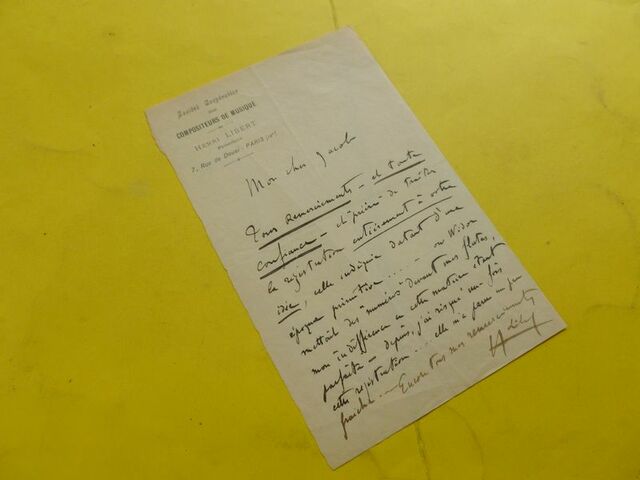 Société Coopérative
des
COMPOSITEURS DE MUSIQUE
HENRI LIBERT
7, Rue de Douai - PARIS (IXe)
Mon cher Jacob
Tous remerciements - et toute
confiance - et prière de traiter
la registration entièrement à votre
idée, celle indiquée datant d'une
époque primitive... - où Widor
mettait des "numéros" devant mes flûtes,
mon indifférence en cette matière étant
parfaite - depuis, j'ai risqué une fois
cette registration... elle m'a paru un peu
fraîche... Encore tous mes remerciements
HLibert